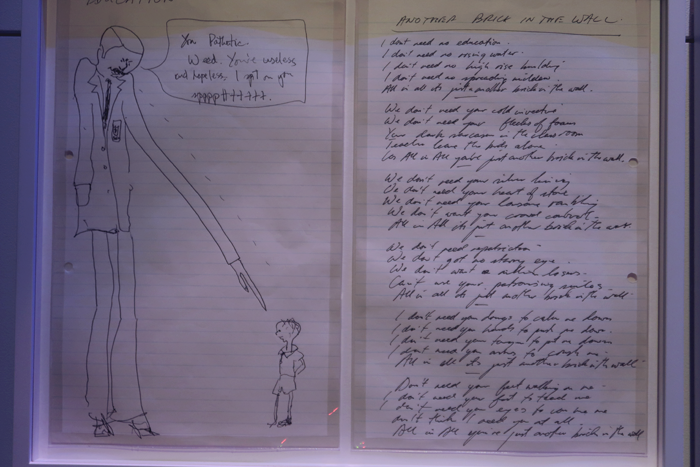 EDUCATION
You Pathetic
Weed. You're useless
and hopeless, I spit on you
ANOTHER BRICK IN THE WALL
I don't need no education.
I don't need no rising water.
I don't need no high rise building
I don't need no spreading mildew.
All in all its just another brick in the wall.
We don't need your
We don't need your flecks of foam
Your dark sarcasm in the classroom
Teacher leave the kids alone.
Cos All in All you're just another brick in the wall.
We don't need your silver lining
We don't need your heart of stone
We don't need your
We don't want your
All in All its just another brick in the wall
We don't need
We don't got no
We don't want a
Can't use your patronising smiles
All in all its just another brick in the wall
I don't need your drugs to calm me down
I don't need your hands to push me down
I don't need your to put me down
I don't need your to crush me
All in all its just another brick in the wall
Don't need your feet walking on me
I don't need your fist to teach me
I don't need your eyes to con me
Don't think I need you at all
All in All you're just another brick in the wall